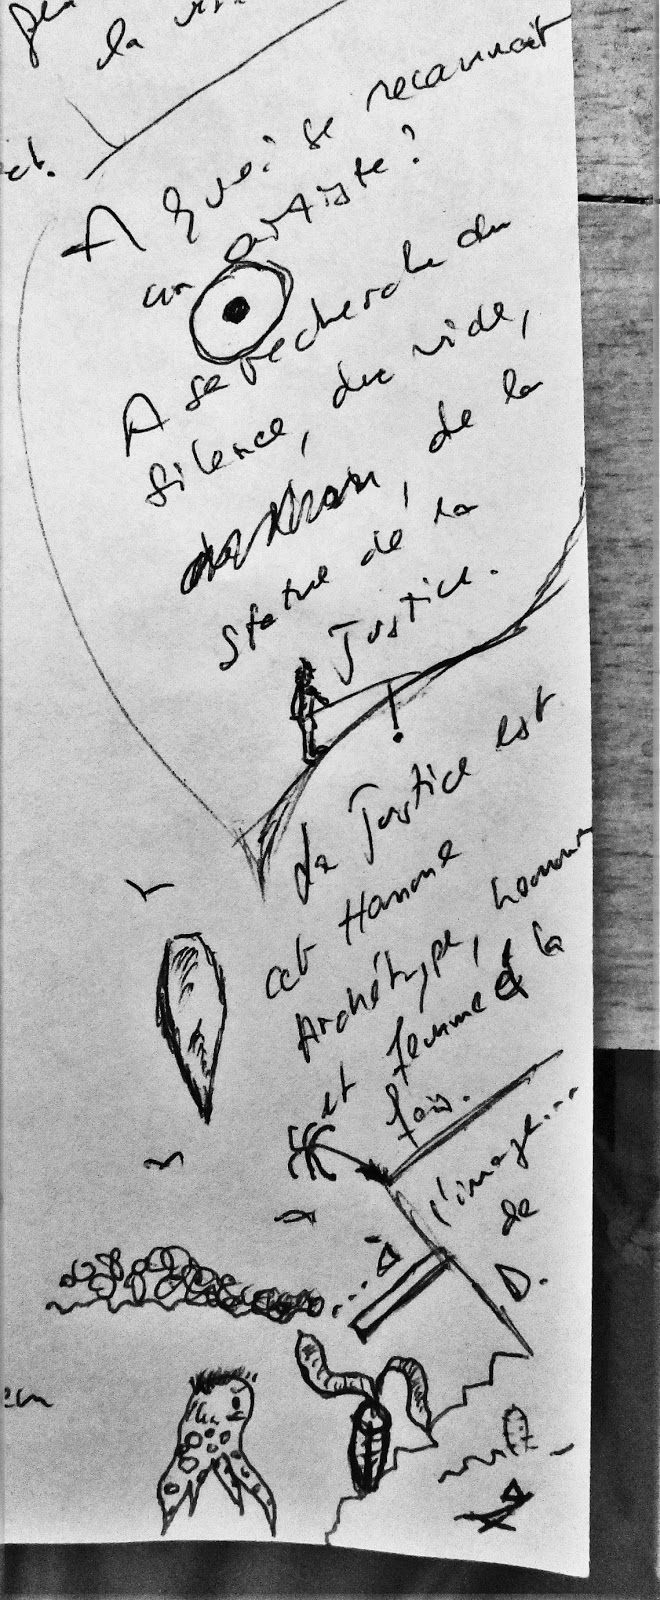 la
ct.
A quoi se reconnait
un artiste?
A sa recherche du
silence, du vide,
de la
statue de la
Justice.
La Justice est
cet Homme
Archétype, homme
et femme à la
fois.
à l'image...
de
D.
em